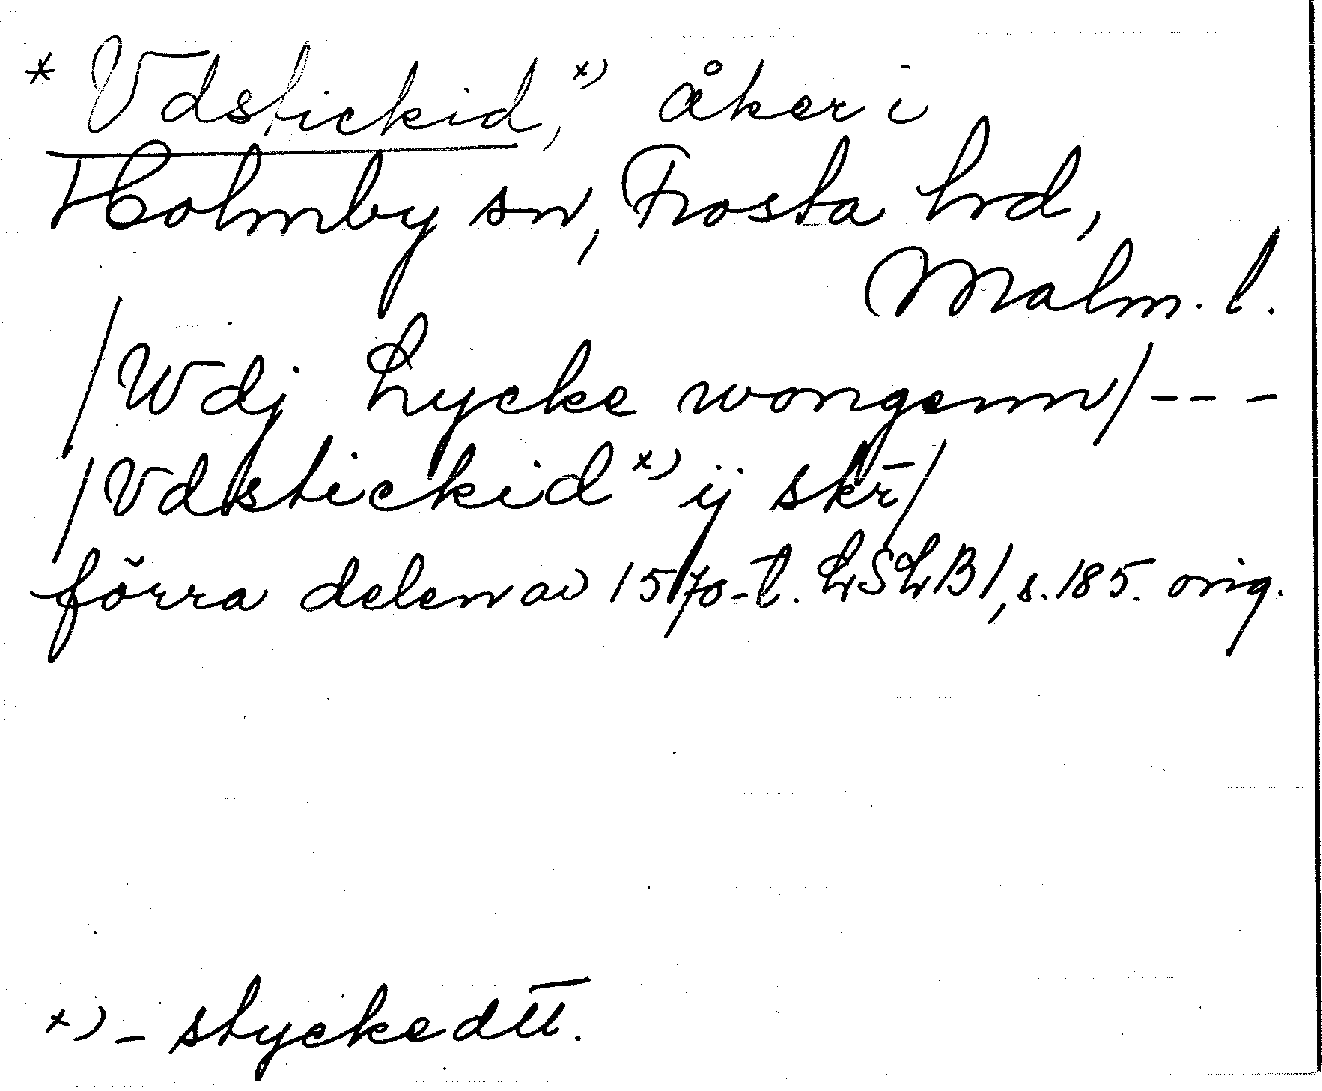 * Vdstickid,*) åker i
Holmby sn, Frosta hrd,
Malm. l.
/Wdj Lycke wongenn/---
/Vdstickid*) ij skr̄/
förra delen av 1570-t. LSLB1, s. 185. orig.
*) - styckedtt.